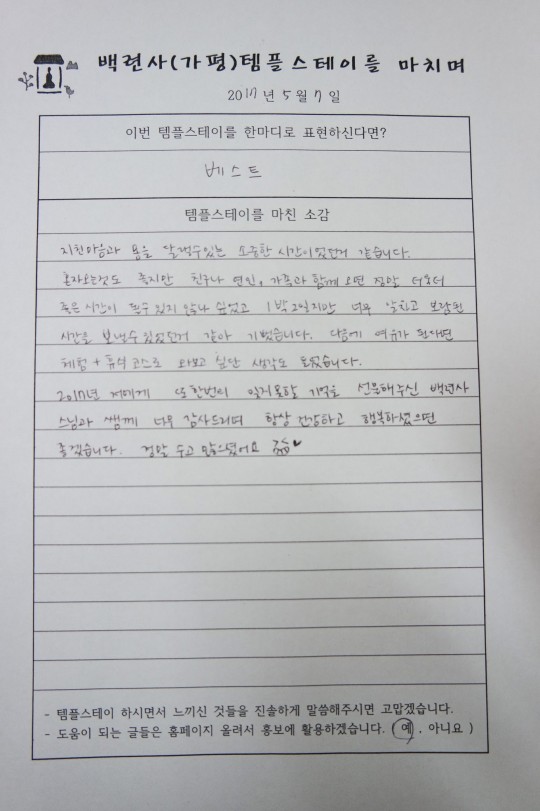 백련사(가평)템플스테이를 마치며
2017년 5월 7일
이번 템플스테이를 한마디로 표현하신다면?
베스트
템플스테이를 마친 소감
지친마음과 몸을 달랠수있는 소중한 시간이었던거 같습니다.
혼자오는것도 좋지만 친구나 연인, 가족과 함께 오면 정말 더욱더
좋은 시간이 될수 있지 않을까 싶었고 1박2일지만 너무 알차고 보람된
시간을 보낼수 있었던거 같아 기뻤습니다. 다음에 여유가 된다면
체험 + 휴식 코스로 와보고 싶단 생각도 들었습니다.
2017년 저에게 또 한번의 잊지못할 기억을 선물해주신 백련사
스님과 쌤께 너무 감사드리며 항상 건강하고 행복하셨으면
좋겠습니다. 정말 수고 많으셨어요 ♥
- 템플스테이 하시면서 느끼신 것들을 진솔하게 말씀해주시면 고맙겠습니다.
- 도움이 되는 글들은 홈페이지 올려서 홍보에 활용하겠습니다. ( 예 , 아니요 )